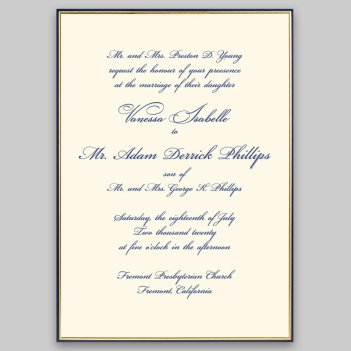 Mr. and Mrs. Preston D. Young
request the honour of your presence
at the marriage of their daughter
Vanessa Isabelle
to
Mr. Adam Derrick Phillips
son of
Mr. and Mrs. George K. Phillips
Saturday, the eighteenth of July
Two thousand twenty
at five o'clock in the afternoon
Fremont Presbyterian Church
Fremont, California